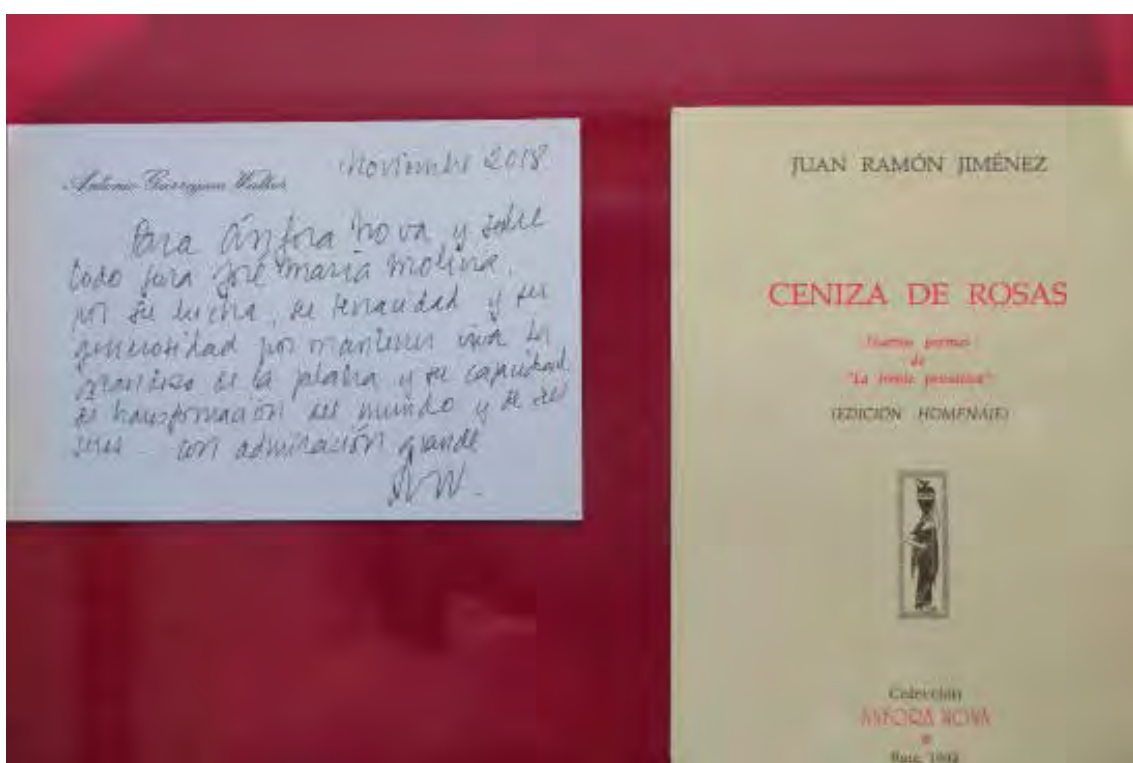 Antonio Garrigues Walker
Noviembre 2018
Para Ánfora Nova y sobre
todo para José María Molina,
por su lucha, su tenacidad y su
generosidad por mantener viva la
grandeza de la palabra y su capacidad
de transformación del mundo y de los
seres con admiración grande
JUAN RAMÓN JIMÉNEZ
CENIZA DE ROSAS
poemas
de
"La frente pensativa"
(EDICIÓN HOMENAJE)
Colección
ANFORA NOVA
Rute, 1992